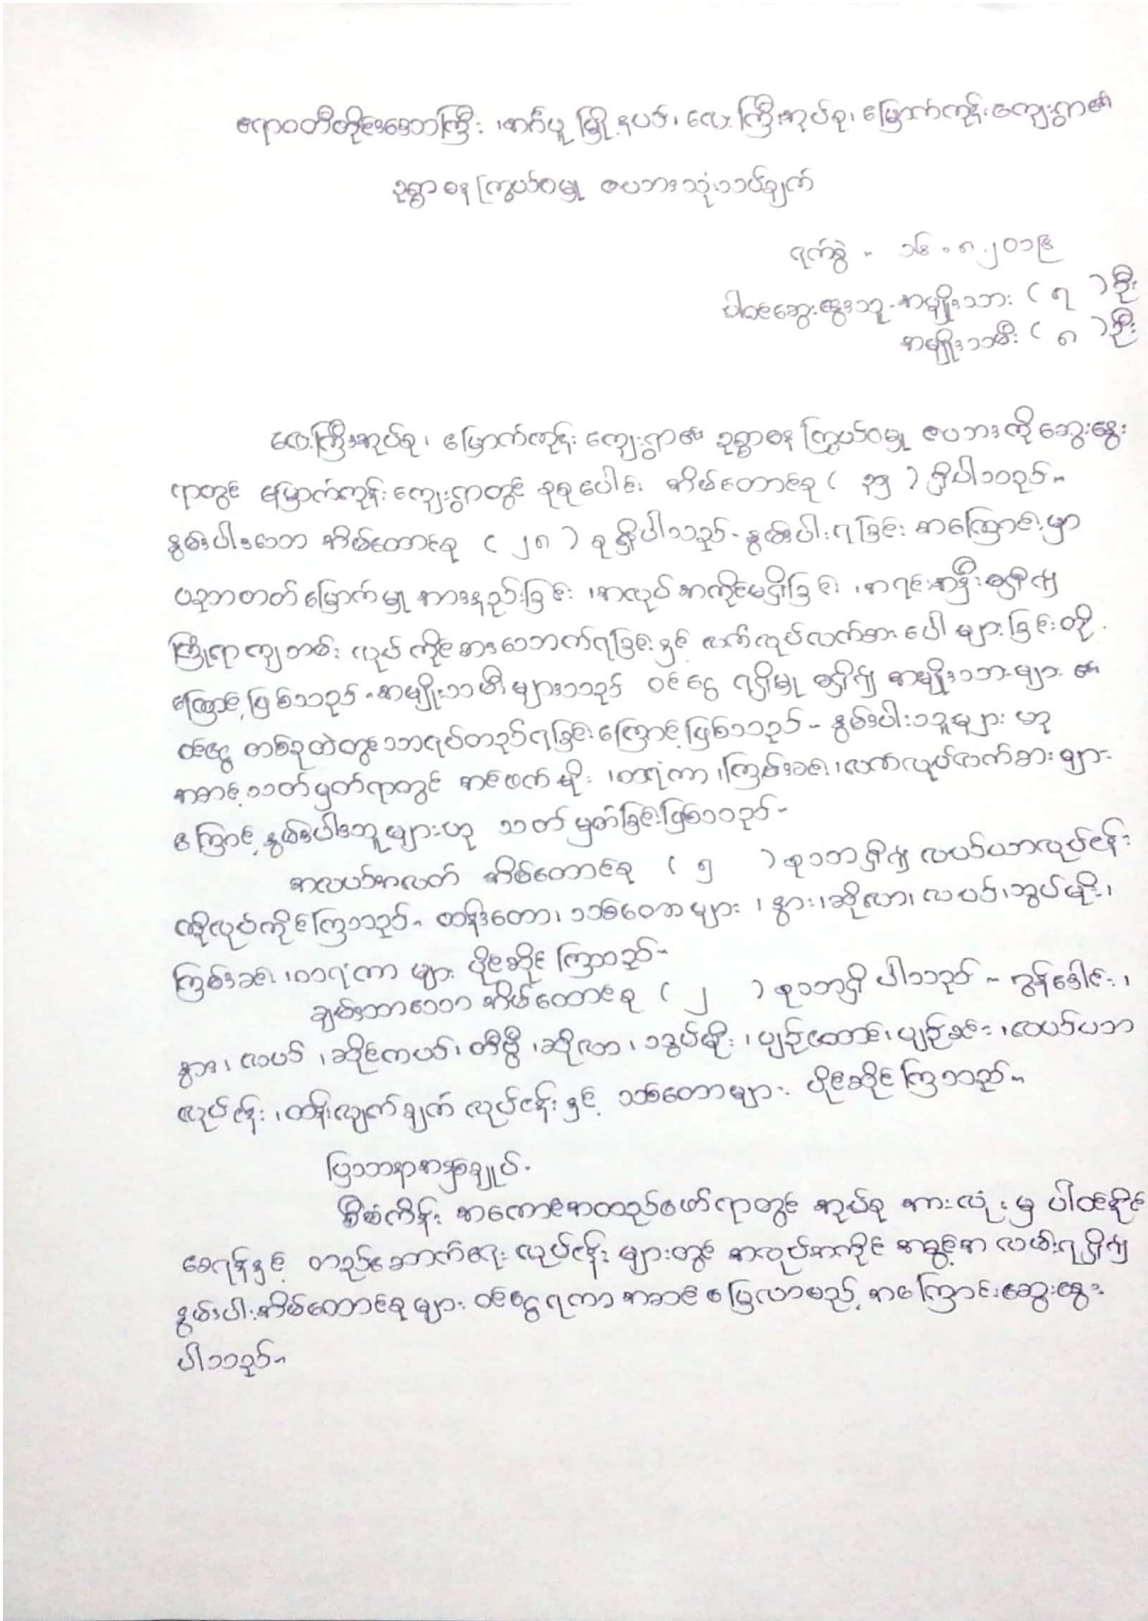 ဧရာဝတီတိုင်းဒေသကြီး ၊အင်္ဂပူ မြို့နယ်၊ လေးကြီးအုပ်စု၊ မြောက်ကုန်းကျေးရွာ၏
ဥစ္စာ ဓန ကြွယ်ဝမှု ဇယား သုံးသပ်ချက်
ရက်စွဲ - ၁၆.၈.၂၀၁၉
ပါဝင်ဆွေးနွေးသူ - အမျိုးသား ( ၇ ) ဦး
အမျိုးသမီး ( ၈ ) ဦး
လေးကြီးအုပ်စု၊ မြောက်ကုန်း ကျေးရွာ၏ ဥစ္စာဓန ကြွယ်ဝမှု ဇယားကို ဆွေးနွေး
ရာတွင် မြောက်ကုန်းကျေးရွာတွင် စုစုပေါင်း အိမ်ထောင်စု ( ၃၅ ) ရှိပါသည်။
နွမ်းပါးသော အိမ်ထောင်စု ( ၂၈ ) စု ရှိပါသည်- နွမ်းပါးရခြင်း အကြောင်းမှာ
ပညာတတ်မြောက်မှု အားနည်းခြင်း ၊အလုပ်အကိုင်မရှိခြင်း ၊အရင်းအနှီးမရှိ၍
ကြုံရာကျပန်း လုပ်ကိုင်စားသောက်ရခြင်းနှင့် လက်လုပ်လက်စား ပေါများခြင်းတို့
ကြောင့်ဖြစ်သည်။ အမျိုးသမီးများသည် ဝင်ငွေ ရရှိမှု မရှိ၍ အမျိုးသားများ ၏
ဝင်ငွေ တစ်ခုတဲတွင်သာရပ်တည်ရခြင်းကြောင့်ဖြစ်သည်- နွမ်းပါးသူများ ဟု
အဆင့်သတ်မှတ်ရာတွင် အင်ဖက်မိုး ၊ထရံကာ ၊ကြမ်းခင်း၊လက်လုပ်လက်စား များ
ကြောင့် နွမ်းပါးသူများဟု သတ်မှတ်ခြင်းဖြစ်သည်-
အလယ်အလတ် အိမ်ထောင်စု ( ၅ ) စုသာရှိ၍ လယ်ယာလုပ်ငန်း
ကိုလုပ်ကိုင်ကြသည်။ ထန်းတော၊ သစ်တောများ ၊ နွား၊ဆိုလာ၊ လယ်၊သွပ်မိုး၊
ကြမ်းခင်း၊ထရံကာ များ ပိုင်ဆိုင် ကြသည်-
ချမ်းသာသော အိမ်ထောင်စု ( ၂ ) စုသာရှိ ပါသည် - ထွန်ဒေါင်း ၊
နွား၊ လယ် ၊ဆိုင်ကယ်၊ တီဗွီ ၊ဆိုလာ ၊ သွပ်မိုး ၊ပျဉ်ထောင်၊ပျဉ်ခင်း ၊လယ်ယာ
လုပ်ငန်း ၊ထန်းလျက်ချက် လုပ်ငန်းနှင့် သစ်တောများ ပိုင်ဆိုင် ကြသည်။
ပြဿနာအနှစ်ချုပ်-
စီမံကိန်း အကောင်အထည်ဖော် ရာတွင် အုပ်စု အားလုံး မှ ပါဝင်နိုင်
စေရန်နှင့် တည်ဆောက်ရေး လုပ်ငန်း များတွင် အလုပ်အကိုင် အခွင့်အလမ်းရရှိ၍
နွမ်းပါးအိမ်ထောင်စုများ ဝင်ငွေရကာ အဆင်ပြေလာမည့် အကြောင်းဆွေးနွေး
ပါသည်။